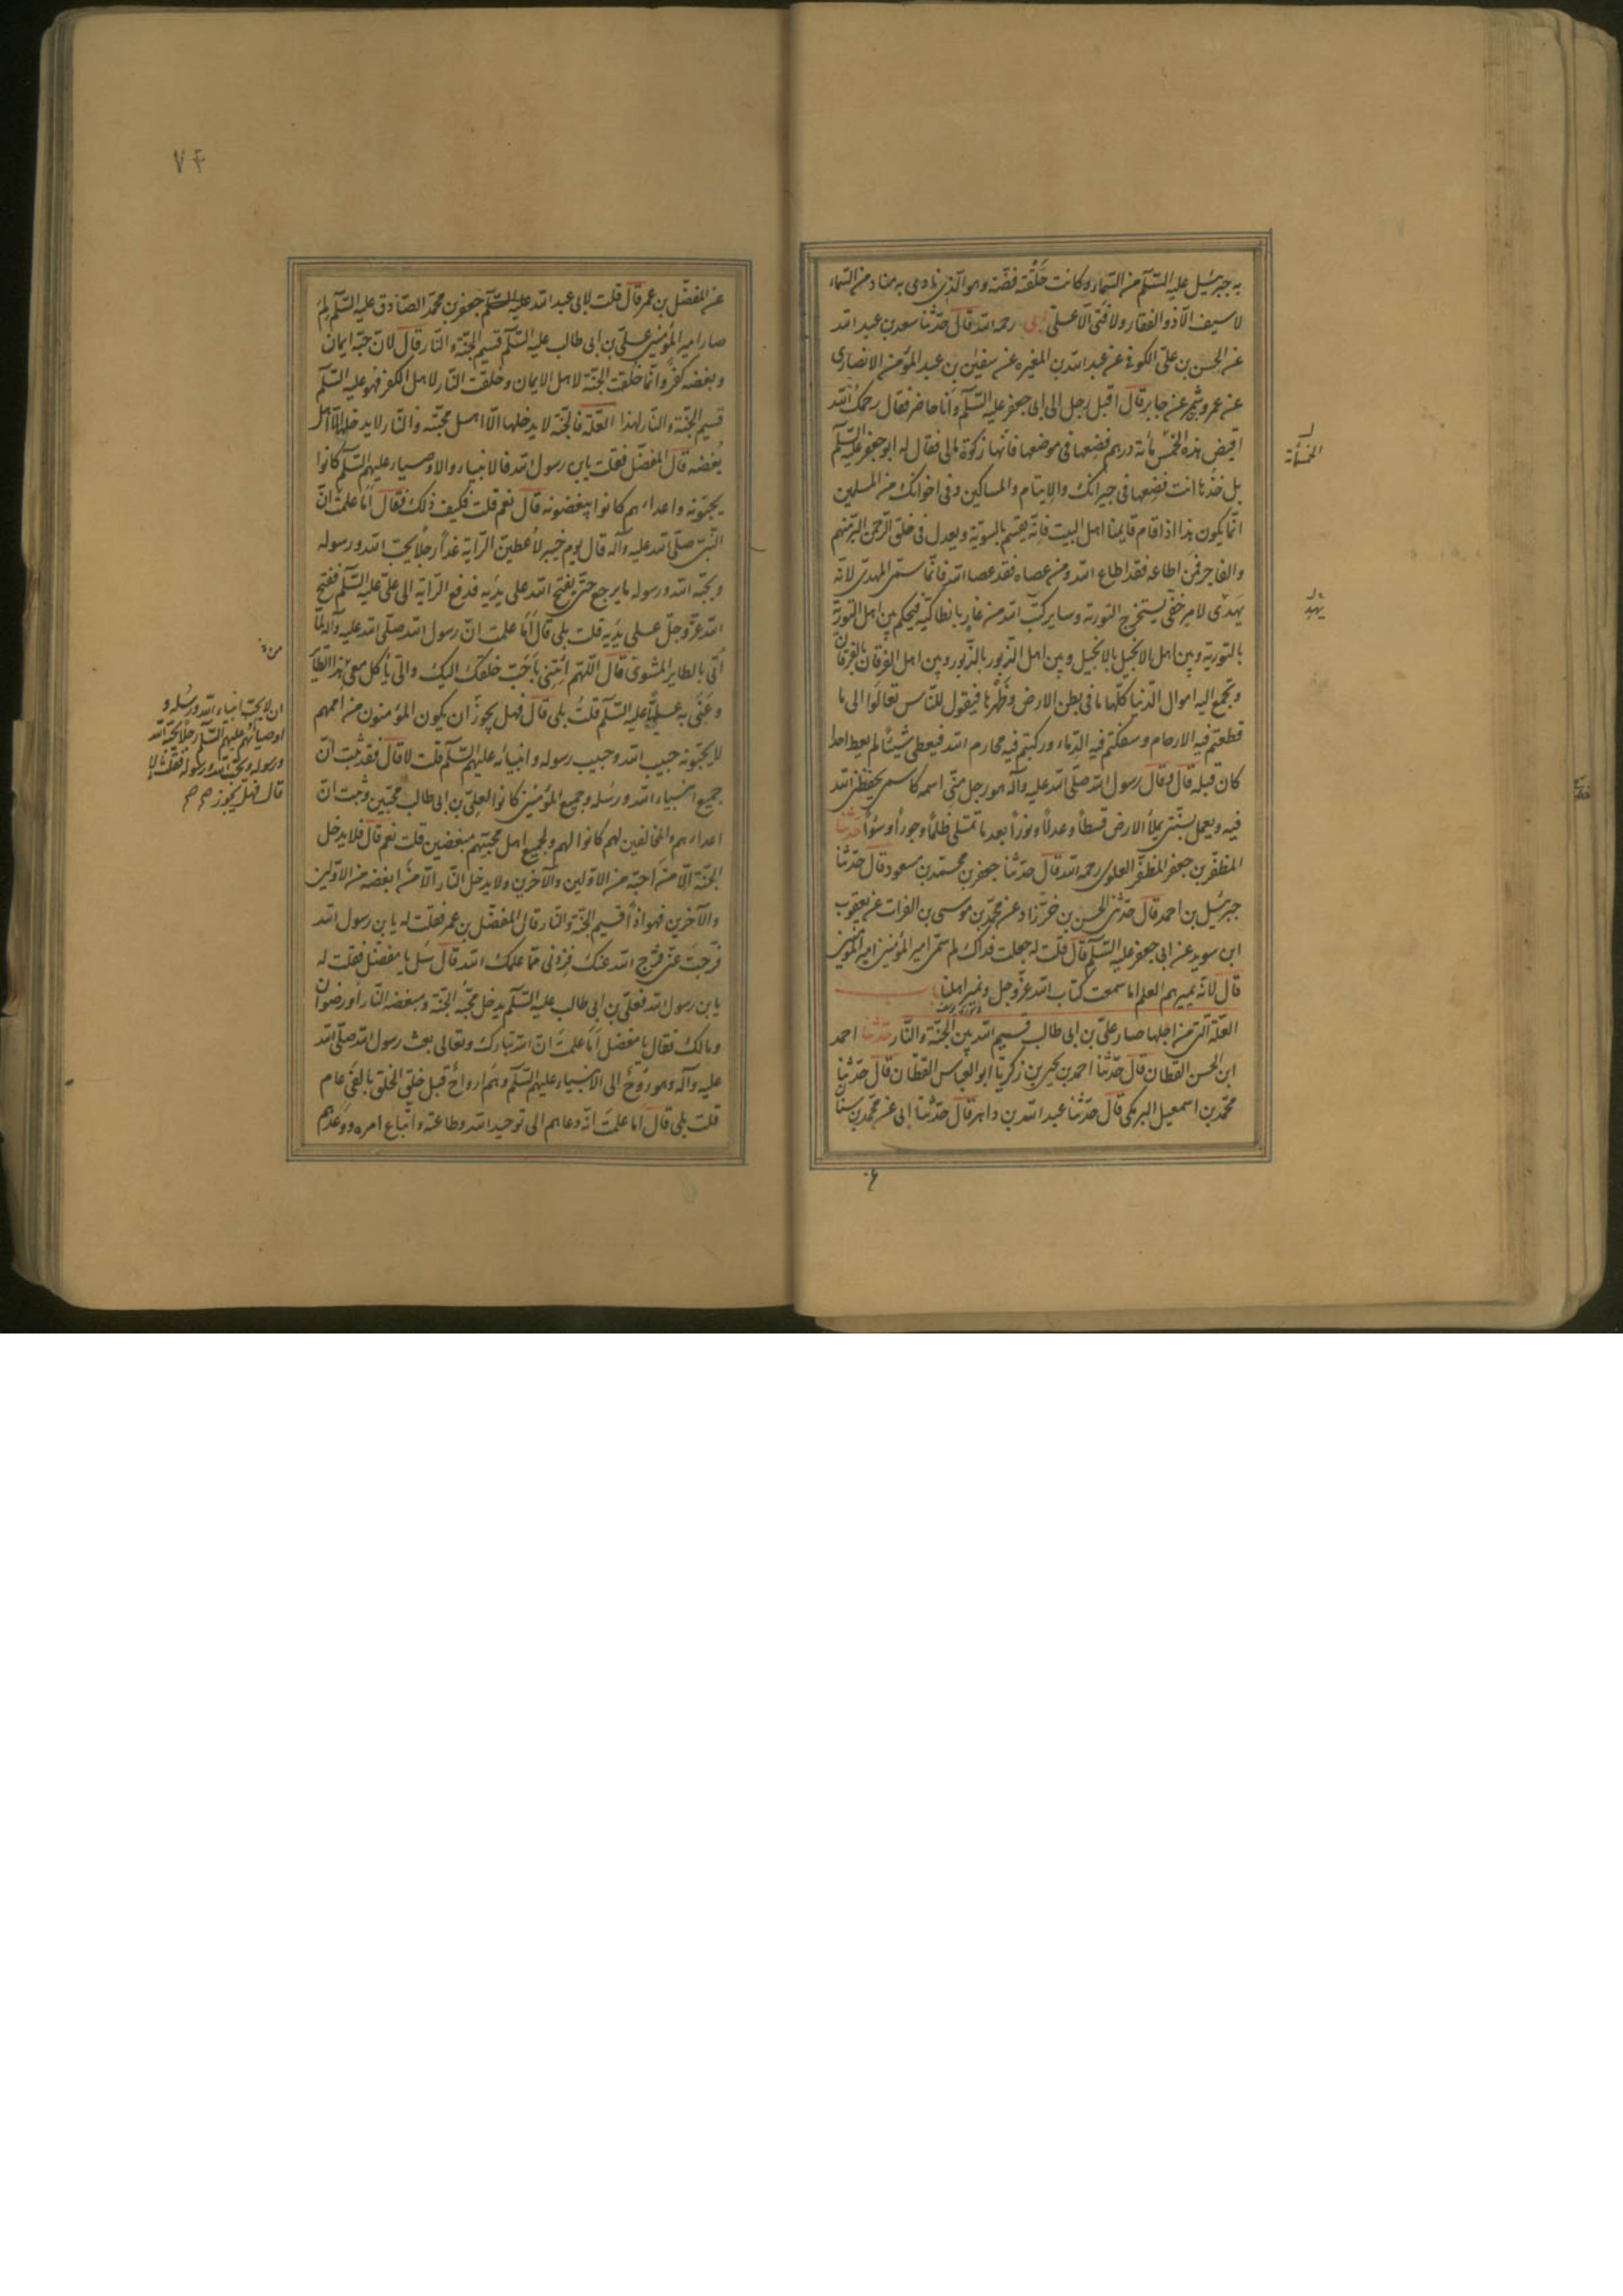 به جبرئيل عليه السّلم من السّماء وكانت حَلْقَته فضّة وهو الّذى نادى به مناد من السّماء
لا سيف الّا ذو الفقار ولا فتى الّا علىّ ابى رحمه الله قال حدّثنا سعد بن عبد الله
عن الحسن بن علىّ الكوفى عن عبد الله بن المغيره عن سفين بن عبد المؤمن الانصارى
عن عمرو بن شمر عن جابر قال اقبل رجل الى ابى جعفر عليه السّلم وانا حاضر فقال رحمك الله
اقبض هذه الخمس مائة درهم فضعها فى موضعها فانّها زكوة مالى فقال له ابو جعفر عليه السّلم
بل خذها انت فضعها فى جيرانك والايتام والمساكين وفى اخوانك من المسلمين
انّما يكون هذا اذا قام قايمنا اهل البيت فانّه يقسم بالسويّة ويعدل فى خلق الرّحمن البرّ منهم
والفاجر فمن اطاعه فقد اطاع الله ومن عصاه فقد عصا الله فانّما سمّى المهدىّ لانّه
يهدى لامر خفىّ يستخرج التورية وساير كتب الله من غار بانطاكية فيحكم بين اهل التورية
بالتورية وبين اهل الانجيل بالانجيل وبين اهل الزّبور بالزّبور وبين اهل الفرقان بالفرقان
وتجمع اليه اموال الدّنيا كلّها ما فى بطن الارض وظهرها فيقول للنّاس تعالوا الى ما
قطعتم فيه الارحام وسفكتم فيه الدّماء وركبتم فيه محارم الله فيعطى شيئاً لم يعط احدا
كان قبله قال وقال رسول الله صلّى الله عليه وآله هو رجل منّى اسمه كاسمى يحفظنى الله
فيه ويعمل بسنّتى يملأ الارض قسطاً وعدلاً ونوراً بعد ما تمتلى ظلماً وجوراً وسؤاً حدّثنا
المظفّر بن جعفر المظفّر العلوى رحمه الله قال حدّثنا جعفر بن محمّد بن مسعود قال حدّثنا
جبرئيل بن احمد قال حدّثنى الحسن بن خرّزاد عن محمّد بن موسى بن الفرات عن يعقوب
ابن سويد عن ابى جعفر عليه السّلم قال قلت له جعلت فداك لم سمّى امير المؤمنين امير المؤمنين
قال لانّه يميرهم العلم اما سمعت كتاب الله عزّ وجل ونمير اهلنا باب
العلّة الّتى من اجلها صار علىّ بن ابى طالب قسيم الله بين الجنّة والنّار حدّثنا احمد
ابن الحسن القطان قال حدّثنا احمد بن يحيى بن زكريّا ابو العبّاس القطّان قال حدّثنا
محمّد بن اسمعيل البرمكى قال حدّثنا عبد الله بن داهر قال حدّثنا ابى عن محمّد بن سنان
الخمسمأة
يهد
٧٤
عن المفضّل بن عمر قال قلت لابى عبد الله عليه السّلم جعفر بن محمّد الصّادق عليه السّلم لِمَ
صار امير المؤمنين علىّ بن ابى طالب عليه السّلم قسيم الجنّة والنّار قال لانّ حبّه ايمان
وبغضه كفر وانّما خلقت الجنّة لاهل الايمان وخلقت النّار لاهل الكفر فهو عليه السّلم
قسيم الجنّة والنّار لهذا العلّة فالجنّة لا يدخلها الّا اهل محبّته والنّار لا يدخلها الّا اهل
بُغضه قال المفضّل فقلت يابن رسول الله فالانبياء والاوصياء عليهم السّلم كانوا
يحبّونه واعداءهم كانوا يبغضونه قال نعم قلت فكيف ذلك فقال اَمَا علمت انّ
النّبىّ صلّى الله عليه وآله قال يوم خيبر لاُعطينّ الرّاية غداً رجلاً يحبّ الله ورسوله
ويحبّه الله ورسوله ما يرجع حتّى يفتح الله على يديه فدفع الرّاية الى علىّ عليه السّلم ففتح
الله عزّ وجلّ على يديه قلت بلى قال اَمَا علمت انّ رسول الله صلّى الله عليه وآله لمّا
اُتى بالطاير المشوى قال اللّهم ائتنى باَحَبّ خلقك اليك والىّ يأكل معى هذا الطّاير
وعنى به عليّاً عليه السّلم قلتُ بلى قال فهل يجوز ان يكون المؤمنون من اممهم
لا يحبّونه حبيب الله وحبيب رسوله وانبيائه عليهم السّلم قلت لا قال فقد ثبت انّ
جميع انبياء الله ورسُله وجميع المؤمنين كانوا لعلىّ بن ابى طالب محبّين وثبت انّ
اعداءهم والمخالفين لهم كانوا لهم ولجميع اهل محبّتهم مبغضين قلت نعم قال فلا يدخل
الجنّة الّا مَن اَحبّه من الاوّلين والآخرين ولا يدخل النّار الّا مَن ابغضه من الاوّلين
والآخرين فهو اذاً قسيم الجنّة والنّار قال المفضّل بن عمر فقلت له يا بن رسول الله
فرّجتَ عنّى فرّج الله عنك فزدنى ممّا علمك الله قال سَل يا مفضّل فقلت له
يا بن رسول الله فعلىّ بن ابى طالب عليه السّلم يدخل محبّه الجنّة ومبغضه النّار او رضوان
ومالك فقال يا مفضل اَمَا علمتَ انّ الله تبارك وتعالى بعث رسول الله صلّى الله
عليه وآله وهو رُوحٌ الى الانبياء عليهم السّلم وهم ارواحٌ قبل خلق الخلق بالفَى عام
قلت بلى قال اَمَا علمتَ انّه دعاهم الى توحيد الله وطاعته واتّباع امره ووعدهم
ان لا يحبّ انبياء الله ورسُله و
اوصيائهم عليهم السّلم رجلاً يحبّه الله
ورسوله ويحبّ الله ورسوله فقلت لا
قال فهل يجوز صح صح